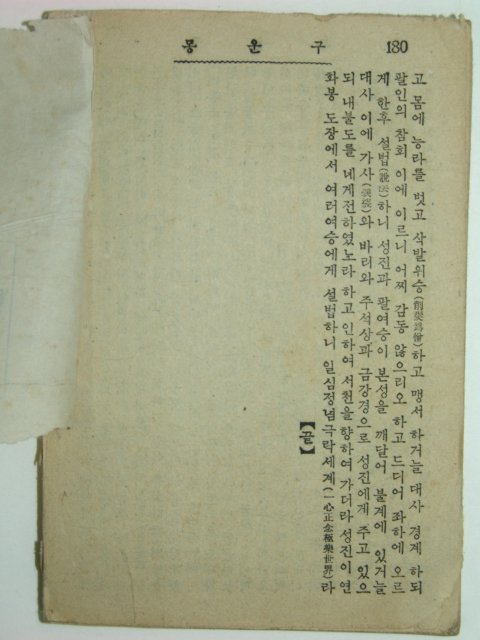 구운몽 180
고 몸에 능라를 벗고 삭발위승(削髮爲僧)하고 맹서 하거늘 대사 경계 하되
팔인의 참회 이에 이르니 어찌 감동 않으리오 하고 드디어 좌하에 오르
게 한후 설법(說法)하니 성진과 팔여승이 본성을 깨달어 불계에 있거늘
대사 이에 가사(袈裟)와 바리와 주석상과 금강경으로 성진에게 주고 있으
되 내불도를 네게전하였노라 하고 인하여 서천을 향하여 가더라 성진이 연
화봉 도장에서 여러여승에게 설법하니 일심정념극락세계(一心正念極樂世界)라
【끝】